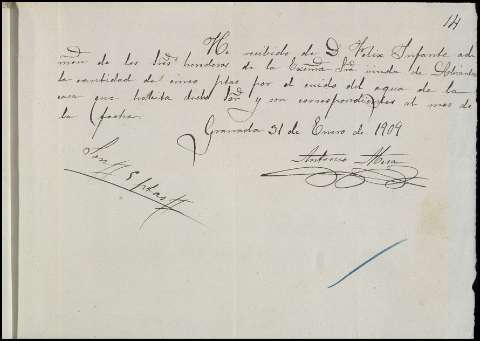 14
He recibido de D Felix Infante ad
mon de los Sres herederos de la Excma Sra viuda de
la cantidad de cinco ptas por el cuido del agua de la
casa que habita dicha Sra y son correspondientes al mes de
la fecha.
Granada 31 de Enero de 1909
Antonio Mesa
Son 5 ptas